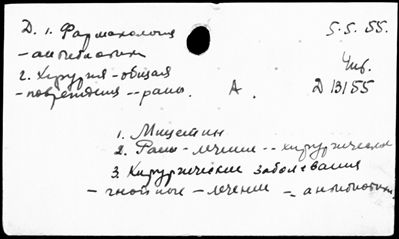 Д. 1. Фармакология 5.5.55.
- антибиотики
2. Хирургия - общая Чиф.
- повреждения -- раны. А. Д 13155
1. Мицетин
2. Раны - лечение -- хирургическое
3. Хирургические заболевания
- гнойные - лечение -- антибиотики